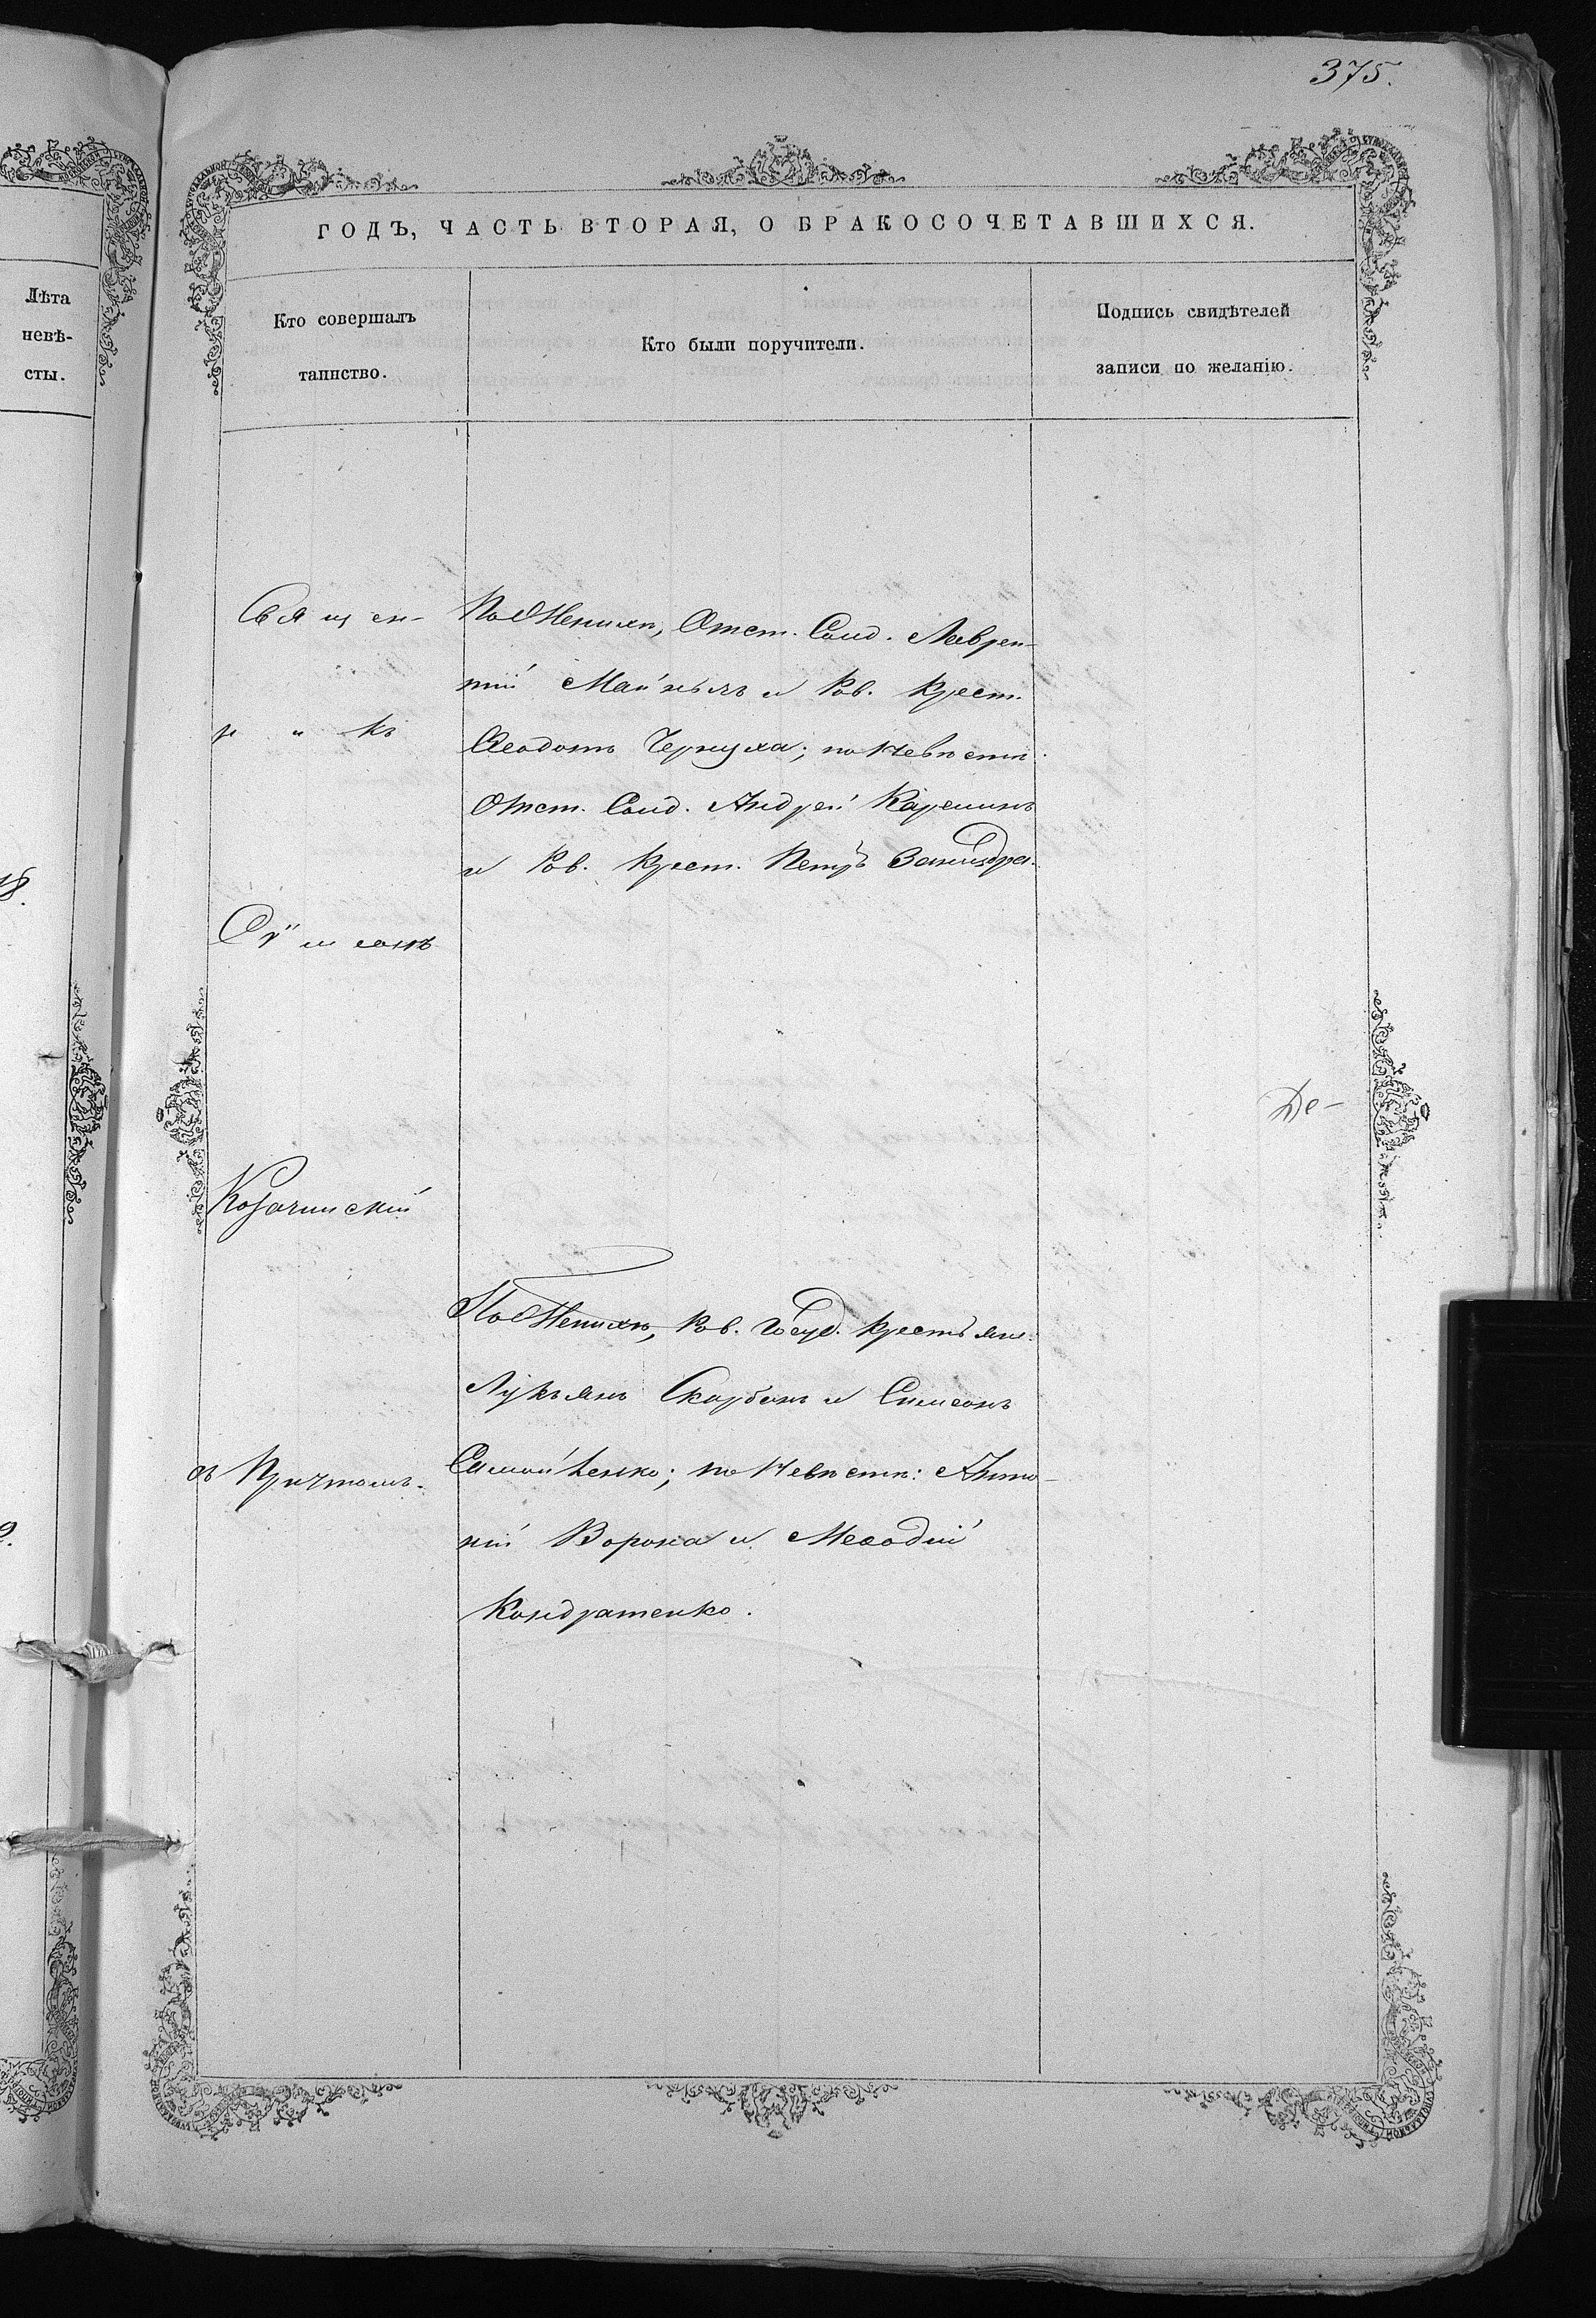 375.
ГОДЪ, ЧАСТЬ ВТОРАЯ, О БРАКОСОЧЕТАВШИХСЯ.
Лѣта
невѣ-
сты.
Кто совершалъ
таинство.
Кто были поручители.
Подпись свидѣтелей
записи по желанію.
Священ-
никъ
Казачинскій
съ Причтомъ.
По Женихѣ, Отст. Солд. Лаврен-
тій и Ков. Крест.
Ѳеодотъ Чернуха; по Невѣстѣ
Отст. Солд. Андрей
и Ков. Крест. Петръ
По Женихѣ, Ков. Госуд. Крестьян.
Лукьянъ Скорбонъ и Симеонъ
Самойленко; по Невѣстѣ: Анто-
ній Ворона и Меѳодій
Кондратенко.
Де-
18.